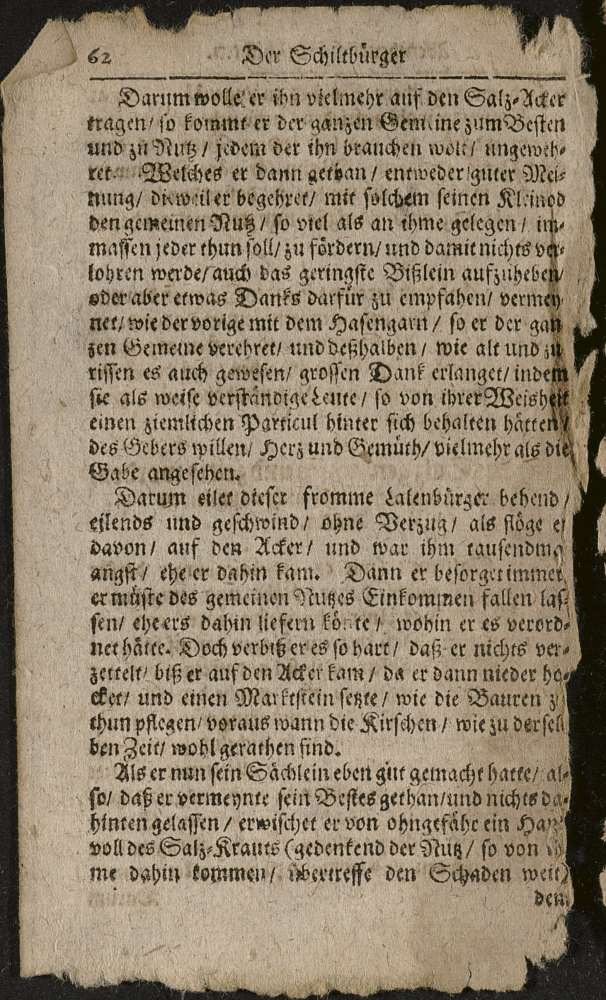 62 Der Schiltbürger
Darum wolle er ihn vielmehr auf den Salz-Acker
tragen/ so kommt er der ganzen Gemeine zum Besten
und zu Nutz / jedem der ihn brauchen wolt/ ungeweh-
ret. Welches er dann gethan / entweder guter Mei-
nung/ dieweil er begehret/ mit solchem seinen Kleinod
den gemeinen Nutz / so viel als an ihme gelegen / im-
massen jeder thun soll/ zu fördern/ und damit nichts ver-
lohren werde/ auch das geringste Bißlein aufzuheben/
oder aber etwas Danks darfür zu empfahen/ vermey-
net/ wie der vorige mit dem Hasengarn / so er der gan
zen Gemeine verehret/ und deßhalben / wie alt und zu
rissen es auch gewesen/ grossen Dank erlanget/ indem
sie als weise verständige Leute / so von ihrer Weisheit
einen ziemlichen Particul hinter sich behalten hätten/
des Gebers willen/ Herz und Gemüth/ vielmehr als die
Gabe angesehen.
Darum eilet dieser fromme Lalenbürger behend /
eilends und geschwind/ ohne Verzug/ als flöge er
davon / auf den Acker/ und war ihm tausendmal
angst / ehe er dahin kam. Dann er besorget immer
er müste des gemeinen Nutzes Einkommen fallen las-
sen/ ehe ers dahin liefern könte / wohin er es verord-
net hätte. Doch verbiß er es so hart / daß er nichts ver-
zettelt/ biß er auf den Acker kam / da er dann nieder ho-
cket/ und einen Marktstein setzte / wie die Bauren zu
thun pflegen/ voraus wann die Kirschen / wie zu dersel
ben Zeit/ wohl gerathen sind.
Als er nun sein Sächlein eben gut gemacht hatte/ al-
so/ daß er vermeynte sein Bestes gethan/ und nichts da-
hinten gelassen / erwischet er von ohngefähr ein Hand
voll des Salz-Krauts (gedenkend der Nutz / so von
me dahin kommen/ übertreffe den Schaden weit)
den